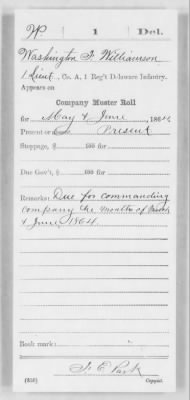 W | 1 | Del.
Washington F. Williamson
1 Lieut., Co. A, 1 Reg't Delaware Infantry.
Appears on
Company Muster Roll
for May & June, 1864.
Present or absent Present
Stoppage, $ 100 for
Due Gov't, $ 100 for
Remarks: Due for commanding
company the months of
& June 1864.
Book mark:
F. E. Park
(858) Copyist.